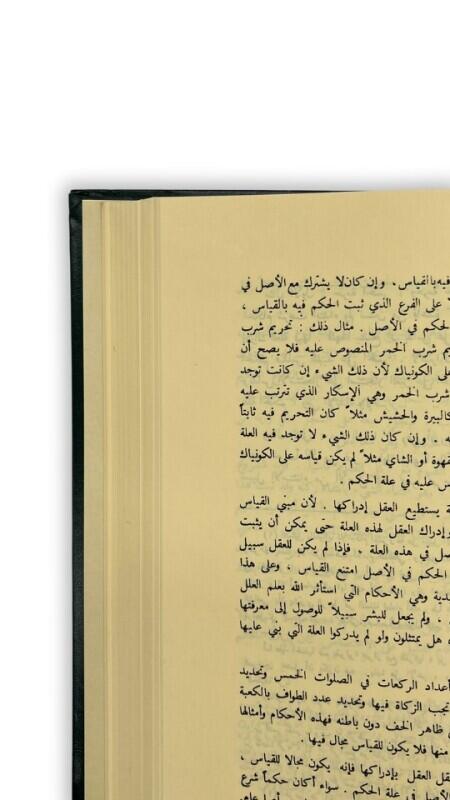 فيه بالقياس . وإن كان لا يشترك مع الأصل في
على الفرع الذي ثبت الحكم فيه بالقياس ،
لحكم في الأصل . مثال ذلك : تحريم شرب
شرب الخمر المنصوص عليه فلا يصح أن
على الكونياك لأن ذلك الشيء إن كانت توجد
شرب الخمر وهي الإسكار الذي تترتب عليه
كالبيرة والحشيش مثلاً كان التحريم فيه ثابتاً
. وإن كان ذلك الشيء لا توجد فيه العلة
قهوة أو الشاي مثلاً لم يكن قياسه على الكونياك
عليه في علة الحكم .
يستطيع العقل إدراكها . لأن مبنى القياس
إدراك العقل لهذه العلة حتى يمكن أن يثبت
في هذه العلة . فإذا لم يكن للعقل سبيل
الحكم في الأصل امتنع القياس ، وعلى هذا
وهي الأحكام التي استأثر الله بعلم العلل
، ولم يجعل للبشر سبيلاً للوصول إلى معرفتها
هل يمتثلون ولو لم يدركوا العلة التي بني عليها
أعداد الركعات في الصلوات الخمس وتحديد
تجب الزكاة فيها وتحديد عدد الطواف بالكعبة
ظاهر الخف دون باطنه فهذه الأحكام وأمثالها
منها فلا يكون للقياس مجال فيها .
العقل بإدراكها فإنه يكون مجالا للقياس ،
الحكم . سواء أكان حكماً شرع